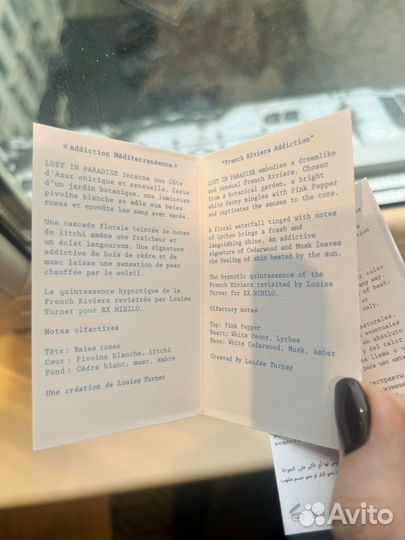 « Addiction Méditerranéenne »
LUST IN PARADISE incarne une Côte
d'Azur onirique et sensuelle. Issue
d'un jardin botanique, une lumineuse
pivoine blanche se mêle aux baies
roses et envoûte les sens avec excès.
Une cascade florale teintée de notes
de litchi amène une fraîcheur et
un éclat langoureux. Une signature
addictive de bois de cèdre et de
musc laisse une sensation de peau
chauffée par le soleil.
La quintessence hypnotique de la
French Riviera revisitée par Louise
Turner pour EX NIHILO.
Notes olfactives
Tête: Baies roses
Cœur: Pivoine blanche, litchi
Fond: Cèdre blanc, musc, ambre
Une création de Louise Turner
"French Riviera Addiction"
LUST IN PARADISE embodies a dreamlike
and sensual French Riviera. Chosen
from a botanical garden, a bright
white Peony mingles with Pink Pepper
and captivates the senses to the core.
A floral waterfall tinged with notes
of Lychee brings a fresh and
languishing shine. An addictive
signature of Cedarwood and Musk leaves
the feeling of skin heated by the sun.
The hypnotic quintessence of the
French Riviera revisited by Louise
Turner for EX NIHILO.
Olfactory notes
Top: Pink Pepper
Heart: White Peony, Lychee
Base: White Cedarwood, Musk, Amber
Created By Louise Turner
color
any way.
of heat.
or
only.
naturales.
eventuales
del color
llama o u
para uso exter
Avito